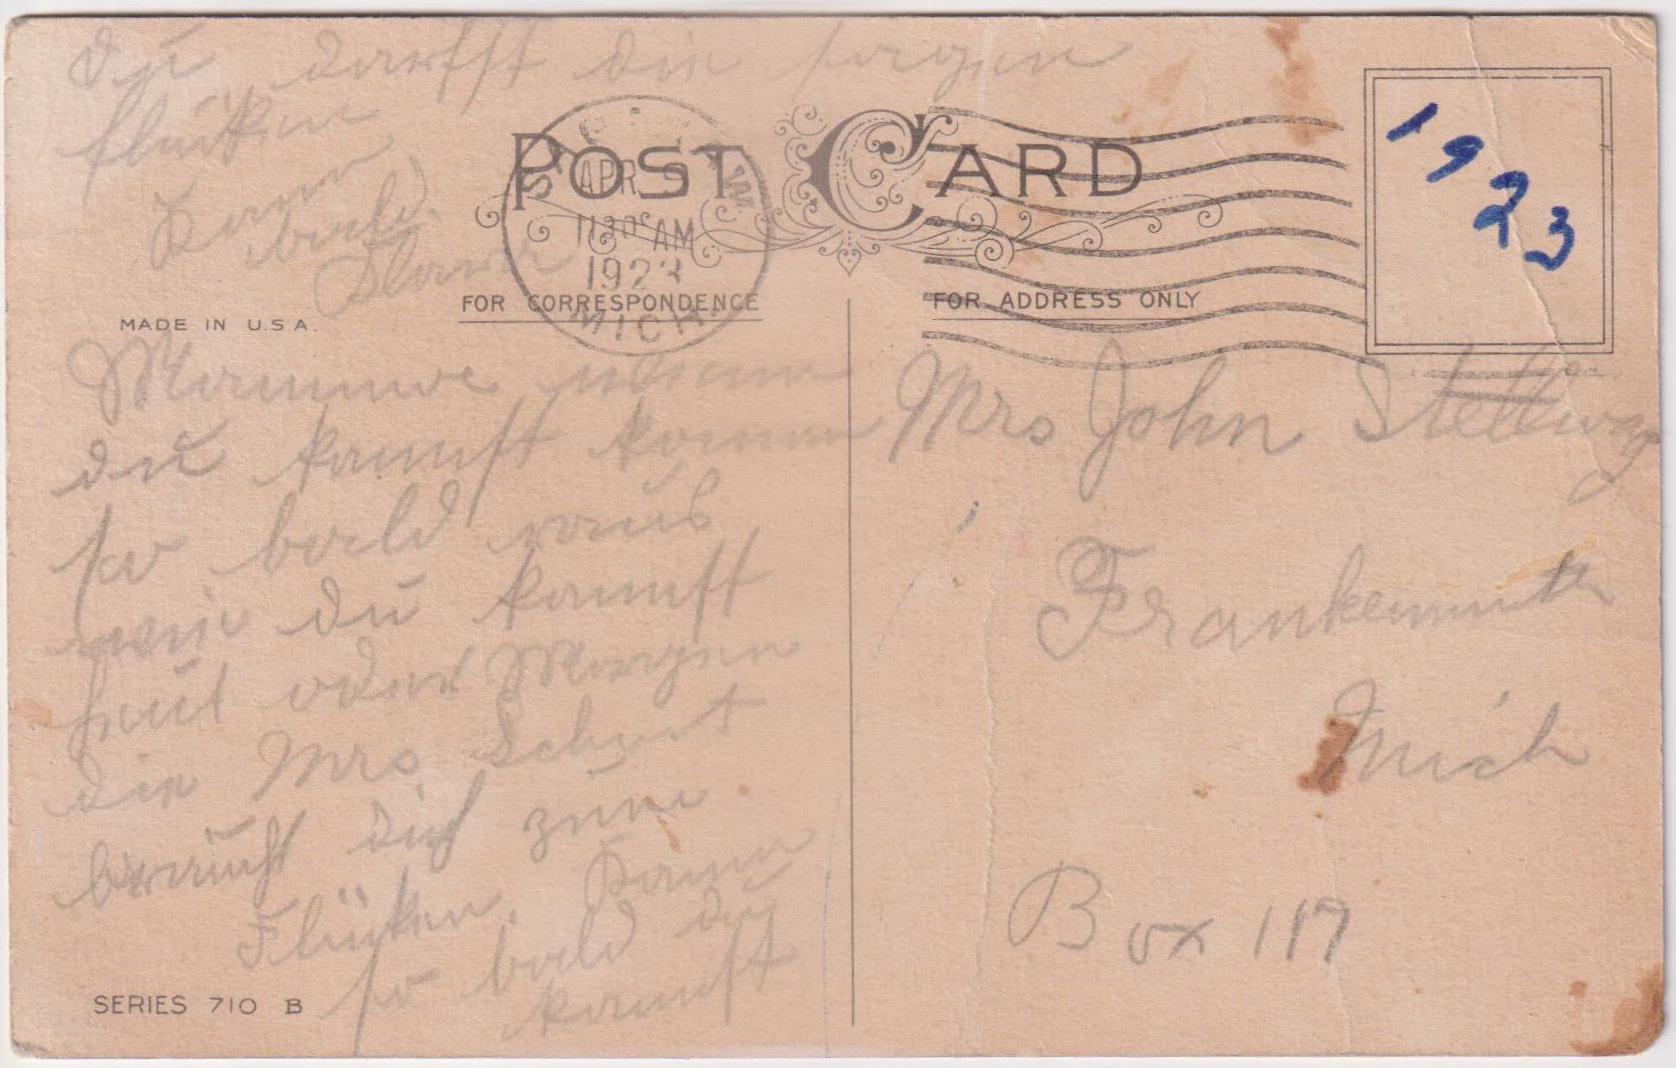 du darfst die sorgen
flücken
Komm
bald
POST CARD
APR
11 30 AM
1923
MICH.
1923
FOR CORRESPONDENCE
FOR ADDRESS ONLY
MADE IN U.S.A.
Mamma wenn
du kannst komme
so bald raus
wie du kannst
heut oder Morgen
die Mrs
braucht dich zum
Flücken. Komm
so bald du
kannst
Mrs John Stellwag
Frankenmuth
Mich
Box 117
SERIES 710 B